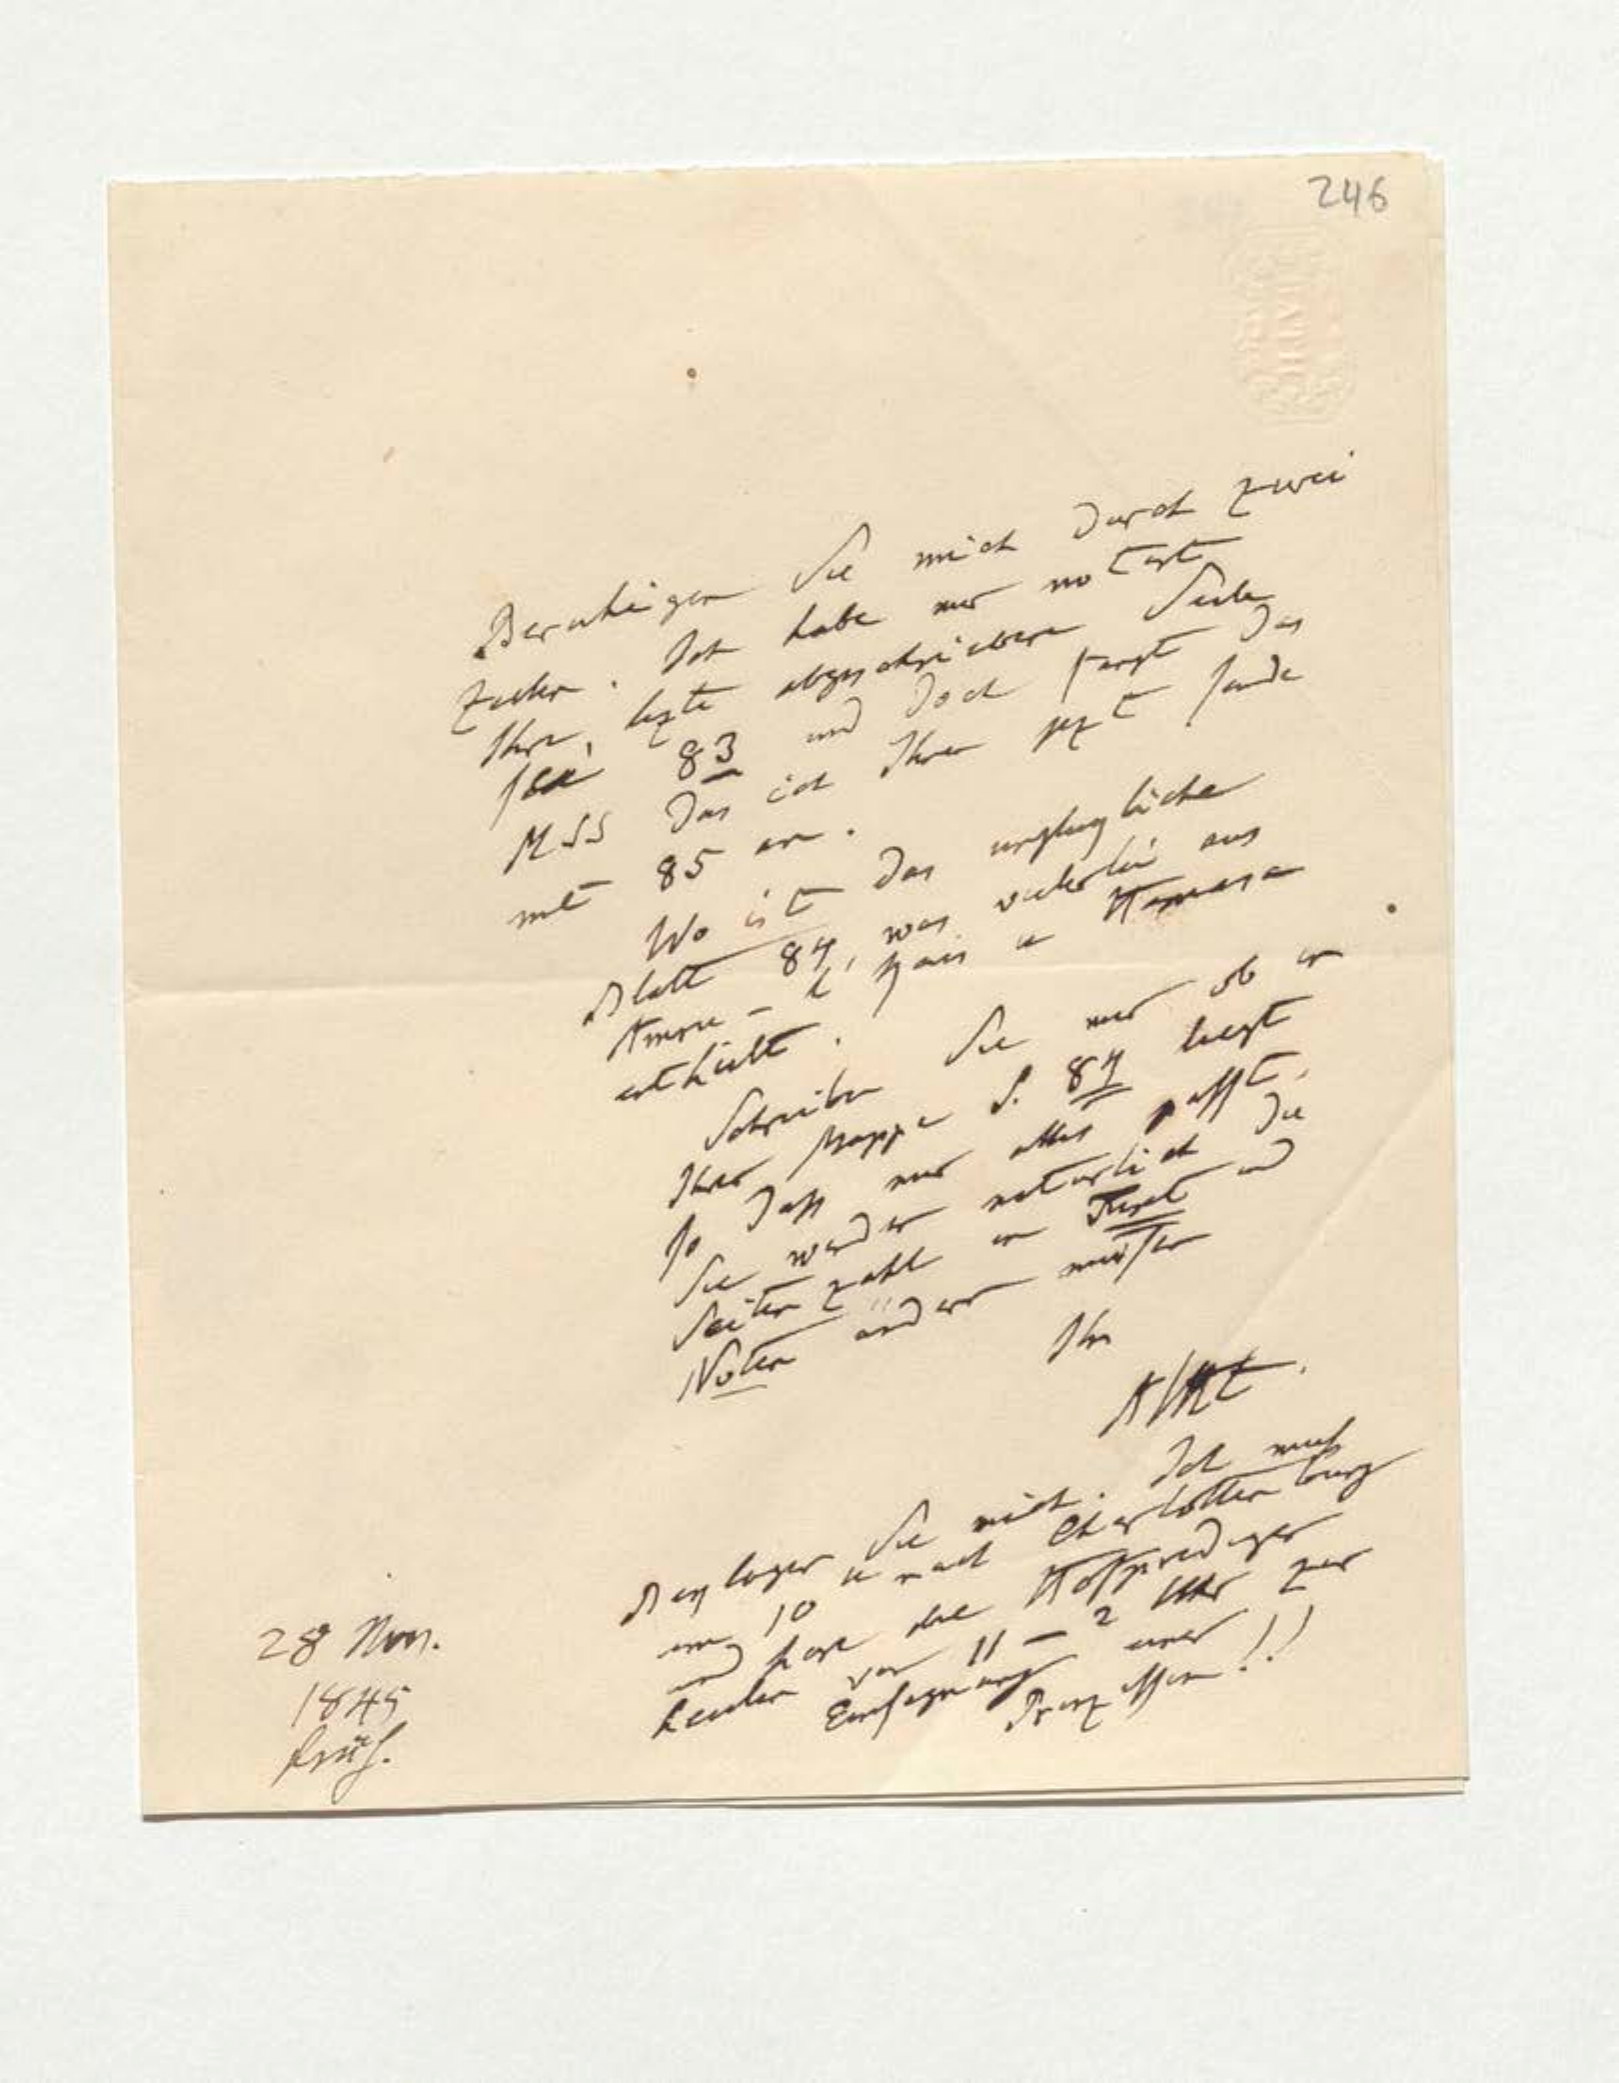 246
Beruhigen Sie mich durch zwei
Zeilen. Ich habe mir notirt
Ihre letzte abgeschriebene Seite
sei 83 und doch fängt das
MSS das ich Ihnen jezt sende
mit 85 an.
Wo ist das unglückliche
Blatt 84, was vielerlei aus
enthielt.
Schreiben Sie mir ob in
Ihrer Mappe S. 84 liegt
so dass nur alles passt.
Sie werden natürlich die
Seitenzahl in Text und
Noten ändern müssen
Ihr
AHt.
Beklagen Sie mich. Ich muß
um 10 u nach Charlottenburg
und höre die Hofprediger
heulen von 11–2 Uhr zur
Einsegnung einer
Prinzessin!!
28 Nov.
1845
früh.